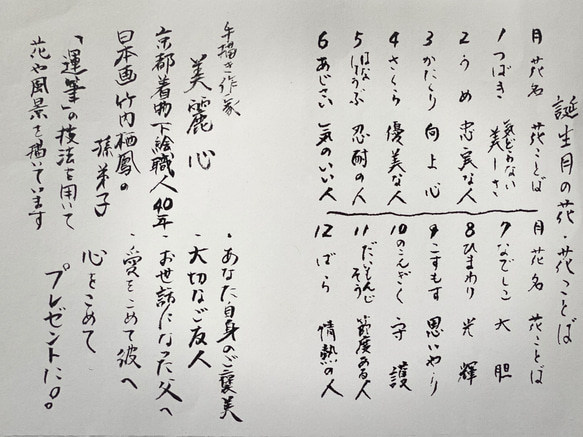 誕生月の花・花ことば
月 花名 花ことば
1 つばき 気どらない美しさ
2 うめ 忠実な人
3 かたくり 向上心
4 さくら 優美な人
5 はなしょうぶ 忍耐の人
6 あじさい 気のいい人
月 花名 花ことば
7 なでしこ 大胆
8 ひまわり 光輝
9 こすもす 思いやり
10 のこんぎく 守護
11 だいもんじそう 節度ある人
12 ばら 情熱の人
手描き作家
美麗 心
京都着物下絵職人40年
日本画竹内栖鳳の
孫弟子
「運筆」の技法を用いて
花や風景を描いています
・あなた自身のご褒美
・大切なご友人
・お世話になった父へ
・愛をこめて彼へ
心をこめて
プレゼントに。。